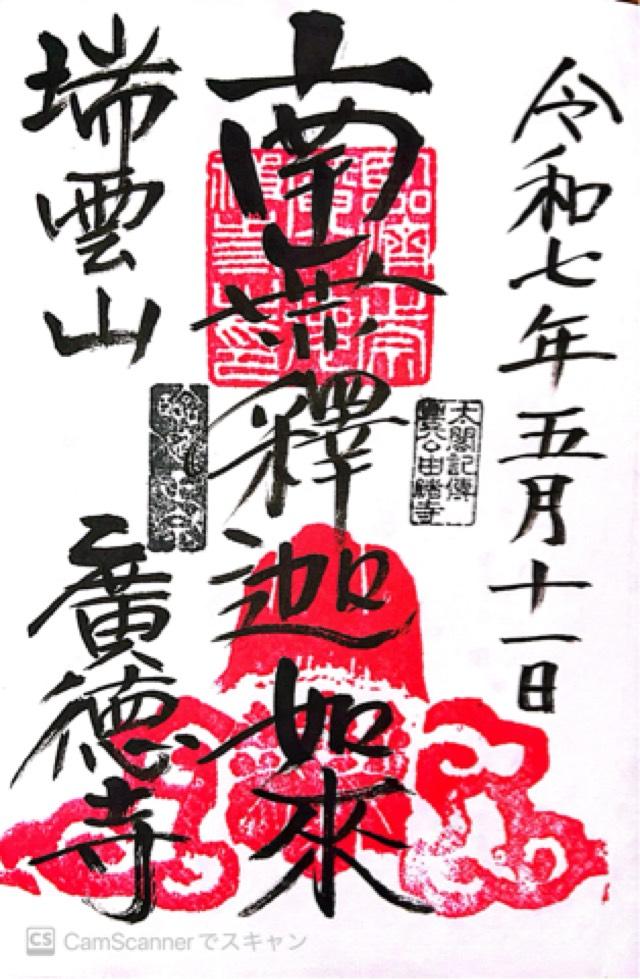 令和七年五月十一日
太閤記傳
公由緒寺
南無釋迦如來
瑞雲山
廣德寺
CS CamScannerでスキャン